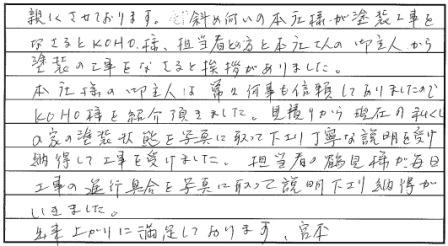 親しくさせております。斜め向いの本庄様が塗装工事を
なさるとKOHO.様、担当者の方と本庄さんの御主人から
塗装の工事をなさると挨拶がありました。
本庄様の御主人は常々何事も信頼しておりましたので
KOHO様を紹介頂きました。見積りから現在の私くし
の家の塗装状態を写真に取って下エリ丁寧な説明を受け
納得して工事を受けました。担当者の鶴見様が毎日
工事の進行具合を写真に取って説明下エリ納得が
いきました。
出来上がりに満足しております。宮本